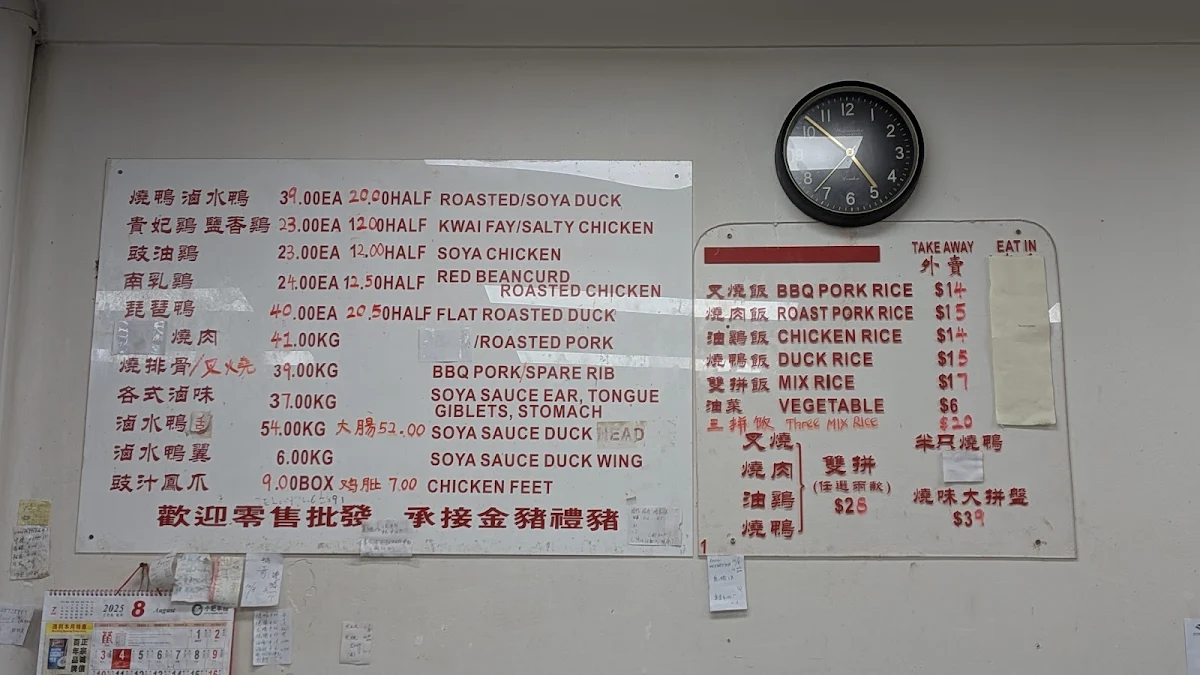 燒鴨滷水鴨 39.00EA 20.00HALF ROASTED/SOYA DUCK
貴妃鷄鹽香鷄 23.00EA 12.00HALF KWAI FAY/SALTY CHICKEN
豉油鷄 23.00EA 12.00HALF SOYA CHICKEN
南乳鷄 24.00EA 12.50HALF RED BEANCURD
ROASTED CHICKEN
琵琶鴨 40.00EA 20.50HALF FLAT ROASTED DUCK
燒肉 41.00KG /ROASTED PORK
燒排骨/叉燒 39.00KG BBQ PORK/SPARE RIB
各式滷味 37.00KG SOYA SAUCE EAR, TONGUE
GIBLETS, STOMACH
滷水鴨 54.00KG 大腸52.00 SOYA SAUCE DUCK HEAD
滷水鴨翼 6.00KG SOYA SAUCE DUCK WING
豉汁鳳爪 9.00BOX 鸡肚 7.00 CHICKEN FEET
歡迎零售批發 承接金豬禮豬
12 1 2 3 4 5 6 7 8 10 11
TAKE AWAY EAT IN
外賣
叉燒飯 BBQ PORK RICE $14
燒肉飯 ROAST PORK RICE $15
油鷄飯 CHICKEN RICE $14
燒鴨飯 DUCK RICE $15
雙拼飯 MIX RICE $17
油菜 VEGETABLE $6
三拼飯 Three MIX RICE $20
叉燒
燒肉
油鷄
燒鴨
雙拼
(任選兩款)
$28
半只燒鴨
燒味大拼盤
$39
1
7 2025 8 August
1 2
3 4 5 6 7 8 9
10 11 12 13 14 15 16